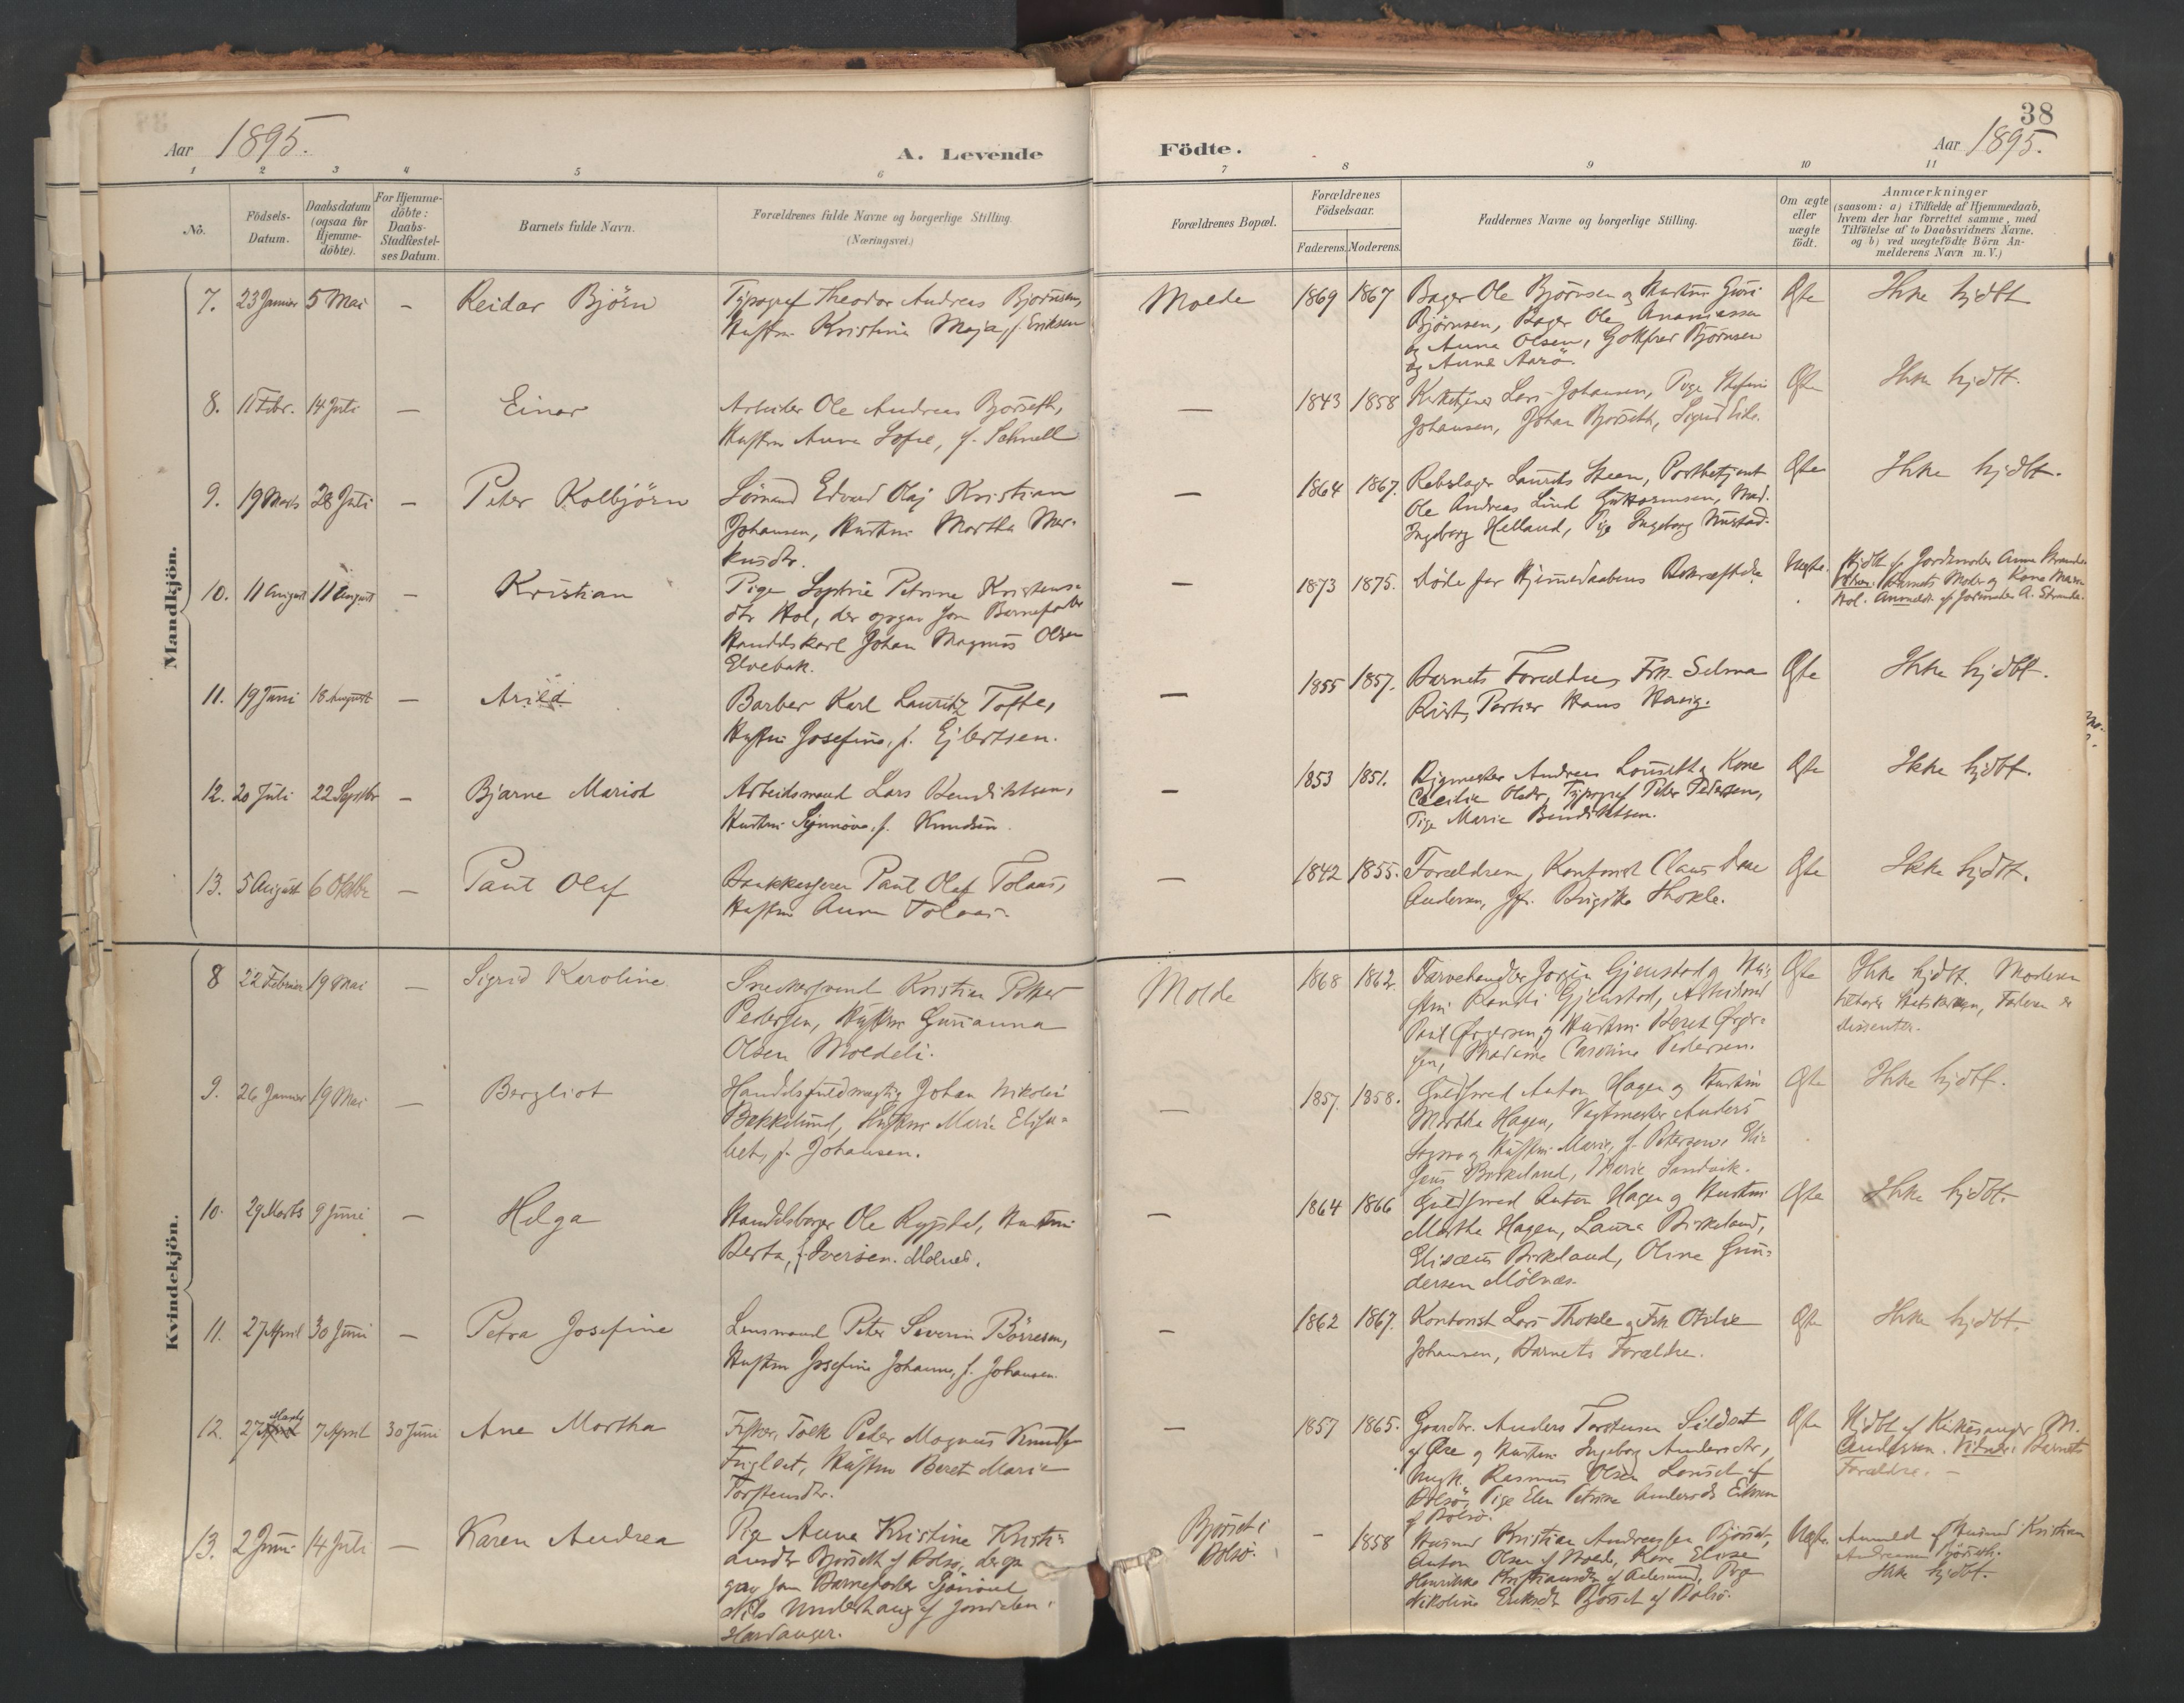 38
Aar 1895.
A. Levende
Födte.
Aar 1895.
1 2 3 4 5 6 7 8 9 10 11
No.
Födsels-Datum.
Daabsdatum (ogsaa for Hjemme-döbte).
For Hjemme-döbte: Daabs-Stadfæstel-ses Datum.
Barnets fulde Navn.
Forældrenes fulde Navne og borgerlige Stilling.
(Næringsvei.)
Forældrenes Bopæl.
Forældrenes Födselsaar.
Faderens. Moderens.
Faddernes Navne og borgerlige Stilling.
Om ægte eller uægte födt.
Anmærkninger
(saasom: a) i Tilfælde af Hjemmedaab,
hvem der har forrettet samme, med
Tilföielse af to Daabsvidners Navne,
og b) ved uægtefödte Börn An-
melderens Navn m. V.)
Mandkjön.
7. 23 Januar 5 Mai – Reidar Björn
Typograf Theodor Andreas Bjørnsen,
Hustru Kristina Maja, f. Eriksen
Molde 1869 1867
Bager Ole Bjørnsen og Hustru Guri
Bjørnsen, Bager Ole Ananiassen
og Anna Olsen, Gotfred Bjørnsen
og Anna Aarö.
Ægte Ikke hjdbt
8. 11 Febr. 14 Juli – Einar
Arbeider Ole Andreas Bjørseth,
Hustru Anna Sofie, f. Schnell
– 1843 1858
Lars Johansen, Pige
Johansen, Johan Bjørseth, Sigrid
Ægte Ikke hjdbt.
9. 19 Marts 28 Juli – Peter Kolbjörn
Sömand Edvard Olaj Kristian
Johansen, Hustru Martha Mar-
kusdtr.
– 1864 1867.
Rebslager Laurits Steen, Postbetjent
Ole Andreas Lind Guttormsen, Mad.
Ingeborg Helland, Pige Ingeborg
Ægte Ikke hjdbt.
10. 11 August 11 August – Kristian
Pige Sophie Petrine Kristens-
dtr Hol, der opgav som Barnefader
Handelskarl Johan Magnus Olsen
Elvebak.
– 1873 1875.
Døde før Hjemmedaabens Bekræftelse
Uægte. Hjdbt af Jordemoder Anna Strande
Vidner: Barnets Moder og Kone Maren
Hol. Anmeldt af Jordmoder A. Strande.
11. 19 Juni 18 August – Arild
Barber Karl Lauritz Tofte,
Hustru Josefine, f. Ejlertsen.
– 1855 1857.
Barnets Forældre, Frk. Selma
Portier Hans
Ægte Ikke hjdbt.
12. 20 Juli 22 Septbr – Bjarne Mariot
Arbeidsmand Lars Bendiktsen,
Hustru Synnöve, f. Knudsen.
– 1853 1851.
Andreas Lönseth og Kone
Cecilie Olsdtr, Typograf Peter Pedersen,
Pige Marie Bendiktsen.
Ægte Ikke hjdbt.
13. 5 August 6 Oktbr – Paul Olaf
Bankkasserer Paul Olaf Tolaas,
Hustru Anna Tolaas.
– 1842 1855.
Forældrene, Kontorist Claus
Andersen, Jfr. Birgitte Thokle.
Ægte Ikke hjdbt.
Kvindekjön.
8 22 Februar 19 Mai – Sigrid Karoline
Snedkersvend Kristian Peter
Pedersen, Hustru Gurianna
Olsen Moldeli.
Molde 1868 1862
Farvehandler Jörgen Gjenstad og Hu-
stru Randi Gjenstad, Arbeidsmd
Paul Ørgersen og Hustru Beret Ørger-
sen, Madame Caroline Pedersen.
Ægte Ikke hjdbt. Moderen
tilhører Statskirken, Faderen er
dissenter.
9. 26 Januar 19 Mai – Bergliot
Handelsfuldmægtig Johan Nikolai
Bekkelund, Hustru Marie Elisa-
bet, f. Johansen.
– 1857 1858.
Guldsmed Anton Hagen og Hustru
Martha Hagen, Vagtmester Anders
og Hustru Marie, f. Petersen, Eli-
sæus Birkeland, Marie Sandvik.
Ægte Ikke hjdbt.
10. 29 Marts 9 Juni – Helga
Handelsborger Ole Rypdal, Hustru
Berta, f. Iversen.
– 1864 1866
Guldsmed Anton Hagen og Hustru
Martha Hagen, Laura Birkeland,
Elisæus Birkeland, Oline Gun-
dersen Mölnæs.
Ægte Ikke hjdbt.
11. 27 April 30 Juni – Petra Josefine
Lensmand Peter Severin Börresen,
Hustru Josefine Johanne, f. Johansen.
– 1862 1867.
Kontorist Lars Thokle og Frk Otilie
Johansen, Barnets Forældre.
Ægte Ikke hjdbt.
12. 27 April Marts 7 April 30 Juni Ane Martha
Fisker, Peder Magnus Knudsen
Fugelset, Hustru Beret Marie
Torstensdtr.
– 1857 1865.
Gaardbr. Anders Torstensen
af Öre og Hustru Ingeborg Andersdtr,
Ungk. Rasmus Olsen Lönset af
Bolsö, Pige Elen Petrine Andersdtr
af Bolsö.
Ægte Hjdbt af Kirkesanger M.
Andersen. Vidner: Barnets
Forældre. –
13. 2 Juni 14 Juli – Karen Andrea
Pige Anna Kristine Kristi-
ansdtr Bjørseth af Bolsø, der op-
gav som Barnefader Sjömand
Nils Underhaug af Jondalen i
Hardanger.
Bjørset i
Bolsø. – 1858
Husmd Kristian Andreassen Bjørset,
Anton Olsen af Molde, Kone Elvise
Henrikke Kristiansdtr af Aalesund, Pige
Nikoline Eriksdtr Bjørset af Bolsö.
Uægte. Anmeldt af Husmd Kristian
Andreassen Bjørseth.
Ikke hjdbt.